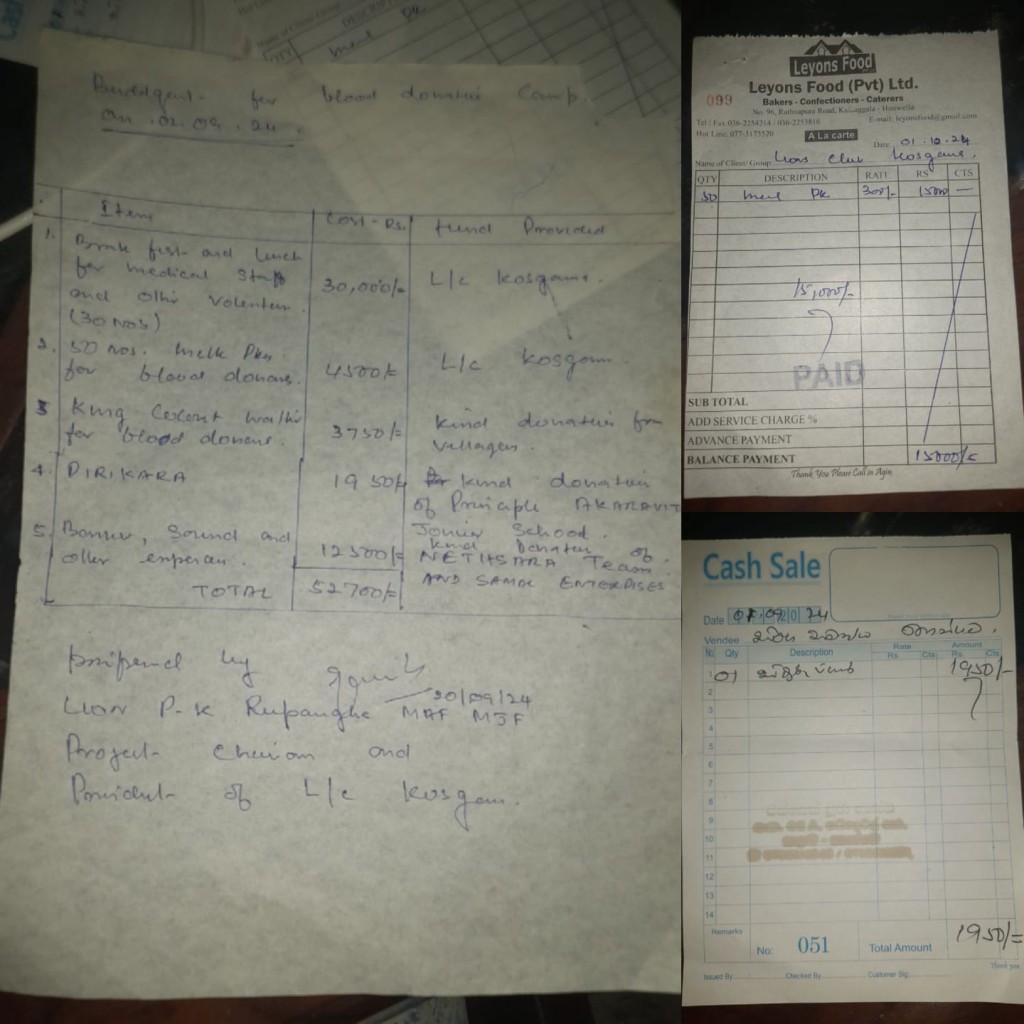 Buudget for blood donatin Camp.
on .02.09.24.
Item Cost-Rs. Fund Provided
1. Brak fist and Lunch
for medical Staff
and othir Volenteer
(30 Nos)
30,000/= L/c Kosgama.
2. 50 Nos. Milk Pkts
for blood donars.
4500/= L/c Kosgama.
3 King Coconut
for blood donars.
3750/= Kind donatin from
villagers.
4. DIRIKARA 1950/= kind donation
of Principle AKARAVIT
Junior School.
5. Banner, Sound and
other expences.
12500/= kind Donation of
NETHSARA Team
AND SAMAN ENTERPRISES
TOTAL 52700/=
Pripared by
30/09/24
LION P.K Rupasinghe MAF MJF
Project Chairman and
President of L/c Kosgama.
Leyons Food
Leyons Food (Pvt) Ltd.
099
Bakers - Confectioners - Caterers
No. 96, Ratnapura Road, Kaluaggala - Hanwella
Tel / Fax 036-2254214 / 036-2253816 E-mail: leyonsfood@gmail.com
Hot Line: 077-3175520
A La carte
Date 01.12.24
Name of Client/ Group Lions Club Kosgama.
QTY DESCRIPTION RATE RS CTS
50 meal Pk 300/- 15000 —
15,000/-
PAID
SUB TOTAL
ADD SERVICE CHARGE %
ADVANCE PAYMENT
BALANCE PAYMENT 15000/=
Thank You Please Call in Agin
Cash Sale
Date 01 09 20 24
Vendee
No Qty Description Rate Amount
Rs. Cts. Rs. Cts.
1 01 1950/-
2
3
4
5
6
7
8
9
10
11
12
13
14
Remarks
No: 051 Total Amount 1950/=
Thank you
Issued By Checked By Customer Sig: